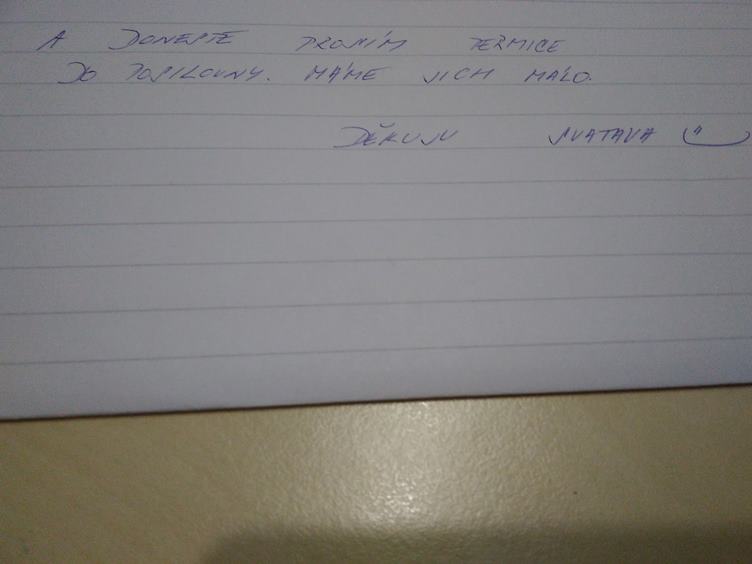 A DONESTE PROSÍM PERMICE
DO POSILOVNY. MÁME JICH MÁLO.
DĚKUJU SVATAVA